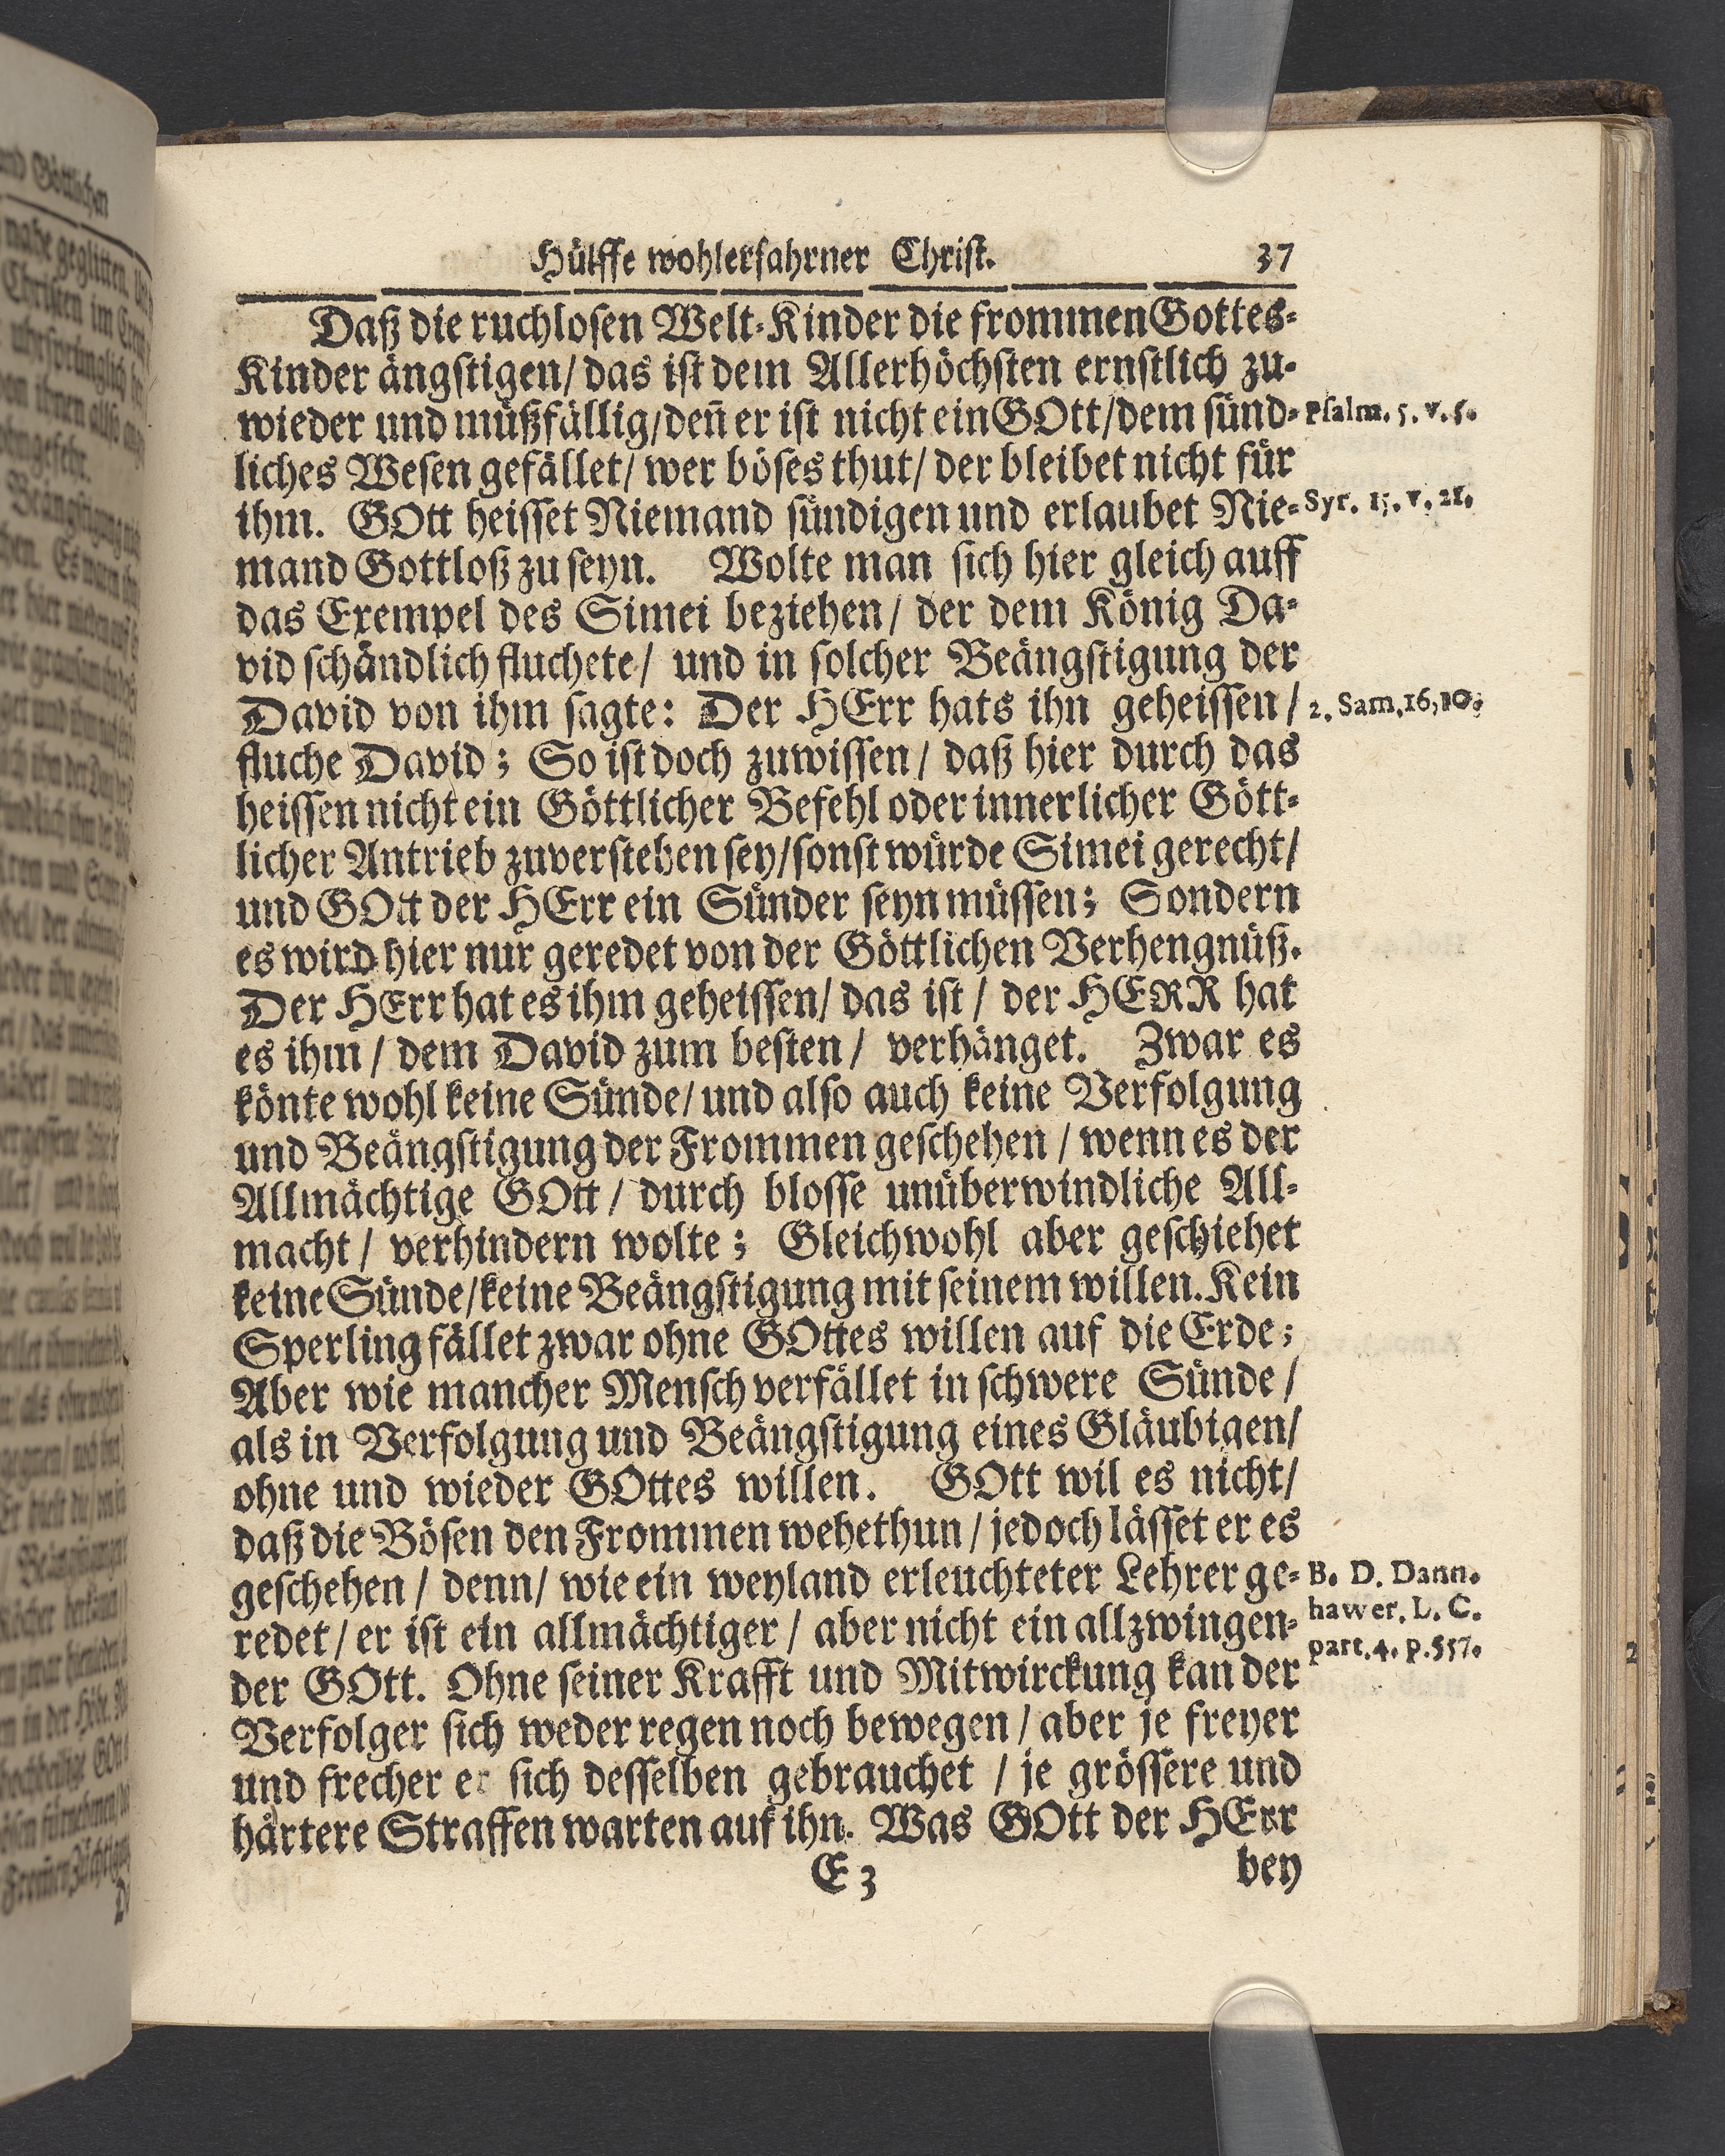 Hülffe wohlerfahrner Christ. 37
Daß die ruchlosen Welt-Kinder die frommen Gottes-
Kinder ängstigen/ das ist dem Allerhöchsten ernstlich zu-
wieder und mußfällig/ den̄ er ist nicht ein GOtt/ dem sünd-
Psalm. 5. v. 5.
liches Wesen gefället/ wer böses thut/ der bleibet nicht für
ihm. GOtt heisset Niemand sündigen und erlaubet Nie-
Syr. 15. v. 21.
mand Gottloß zu seyn. Wolte man sich hier gleich auff
das Exempel des Simei beziehen/ der dem König Da-
vid schändlich fluchete/ und in solcher Beängstigung der
David von ihm sagte: Der HErr hats ihn geheissen/
2. Sam, 16, 10.
fluche David; So ist doch zuwissen/ daß hier durch das
heissen nicht ein Göttlicher Befehl oder innerlicher Gött-
licher Antrieb zuverstehen sey/ sonst würde Simei gerecht/
und GOtt der HErr ein Sünder seyn müssen; Sondern
es wird hier nur geredet von der Göttlichen Verhengnüß.
Der HErr hat es ihm geheissen/ das ist/ der HERR hat
es ihm/ dem David zum besten/ verhänget. Zwar es
könte wohl keine Sünde/ und also auch keine Verfolgung
und Beängstigung der Frommen geschehen/ wenn es der
Allmächtige GOtt/ durch blosse unüberwindliche All-
macht/ verhindern wolte; Gleichwohl aber geschiehet
keine Sünde/ keine Beängstigung mit seinem willen. Kein
Sperling fället zwar ohne GOttes willen auf die Erde;
Aber wie mancher Mensch verfället in schwere Sünde/
als in Verfolgung und Beängstigung eines Gläubigen/
ohne und wieder GOttes willen. GOtt wil es nicht/
daß die Bösen den Frommen wehethun/ jedoch lässet er es
geschehen/ denn/ wie ein weyland erleuchteter Lehrer ge-
redet/ er ist ein allmächtiger/ aber nicht ein allzwingen-
B. D. Dann-
hawer. L. C.
part. 4. p. 557.
der GOtt. Ohne seiner Krafft und Mitwirckung kan der
Verfolger sich weder regen noch bewegen/ aber je freyer
und frecher er sich desselben gebrauchet/ je grössere und
härtere Straffen warten auf ihn. Was GOtt der HErr
E 3 bey